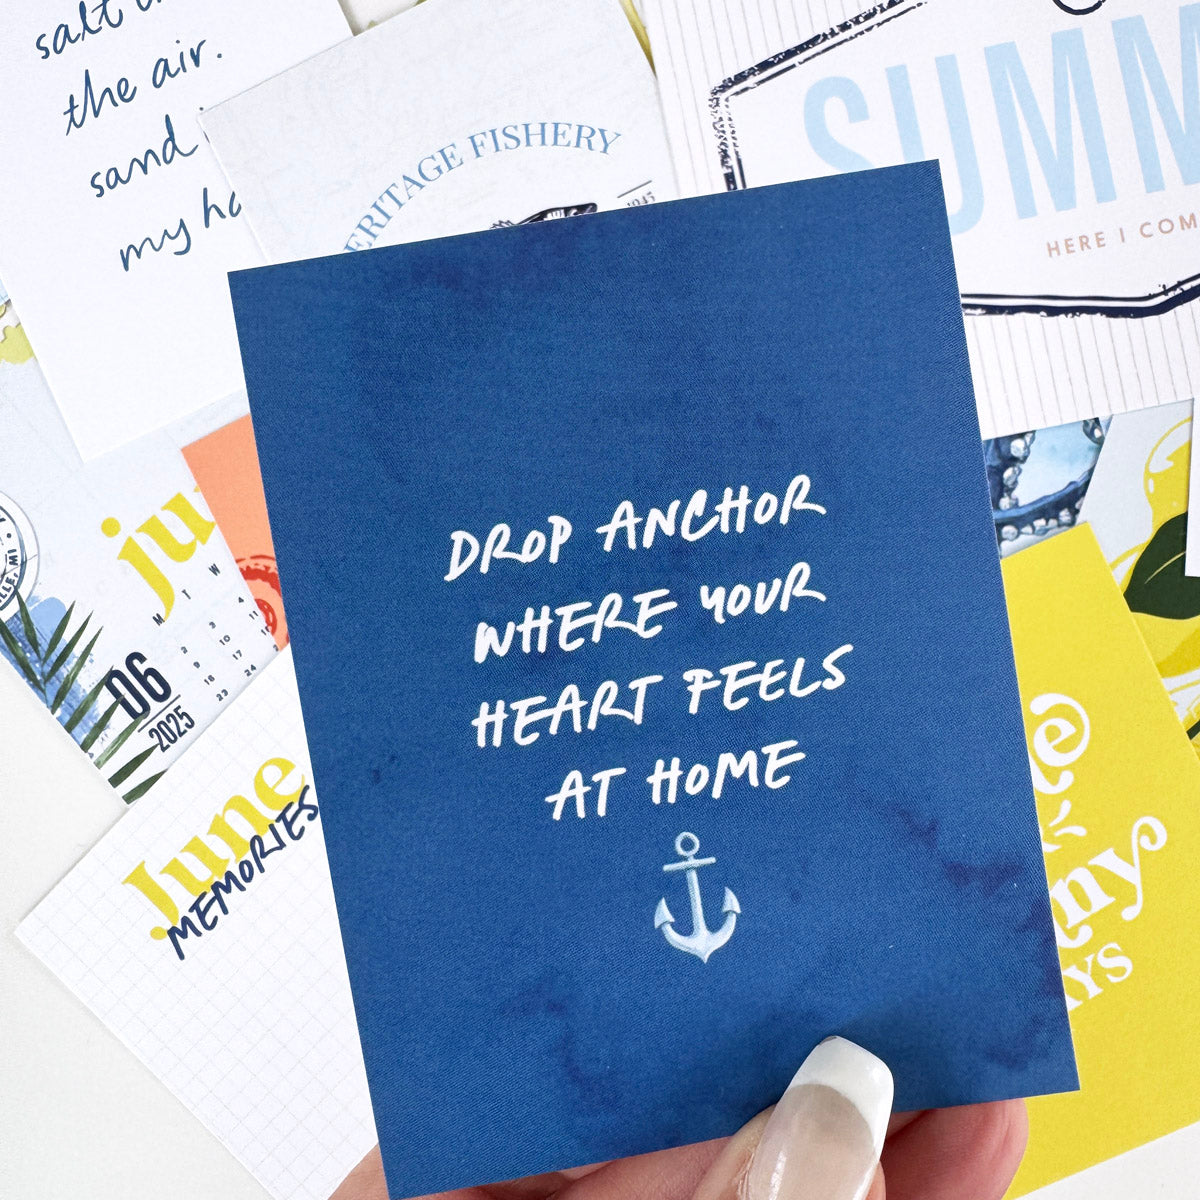 salt
the air.
sand
my
HERITAGE FISHERY
1945
SUMM
HERE I COM
DROP ANCHOR
WHERE YOUR
HEART FEELS
AT HOME
M T W
2 3 4
9 10 11
16 17 18
23 24
06
2025
June
MEMORIES